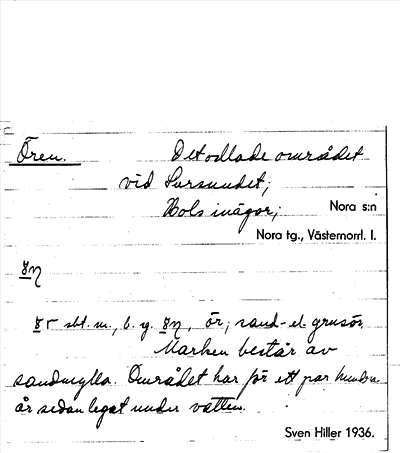 Ören. Det odlade området
vid Sursundet;
Hols inägor; Nora s:n
Nora tg., Västernorrl. l.
sbt. m., b. g. ör, sand- el. grusör,
Marken består av
sandmylla. Området har för ett par hundra
år sedan legat under vatten.
Sven Hiller 1936.